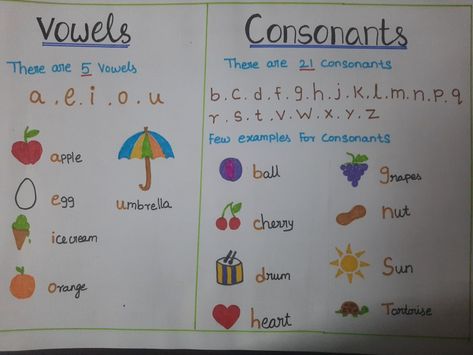 Vowels
There are 5 Vowels
a.e.i.o.u
apple
egg
umbrella
ice cream
orange
Consonants
There are 21 consonants
b.c.d.f.g.h.j.k.l.m.n.p.q
r.s.t.v.w.x.y.z
Few examples for consonants
ball
grapes
cherry
nut
drum
Sun
heart
Tortoise